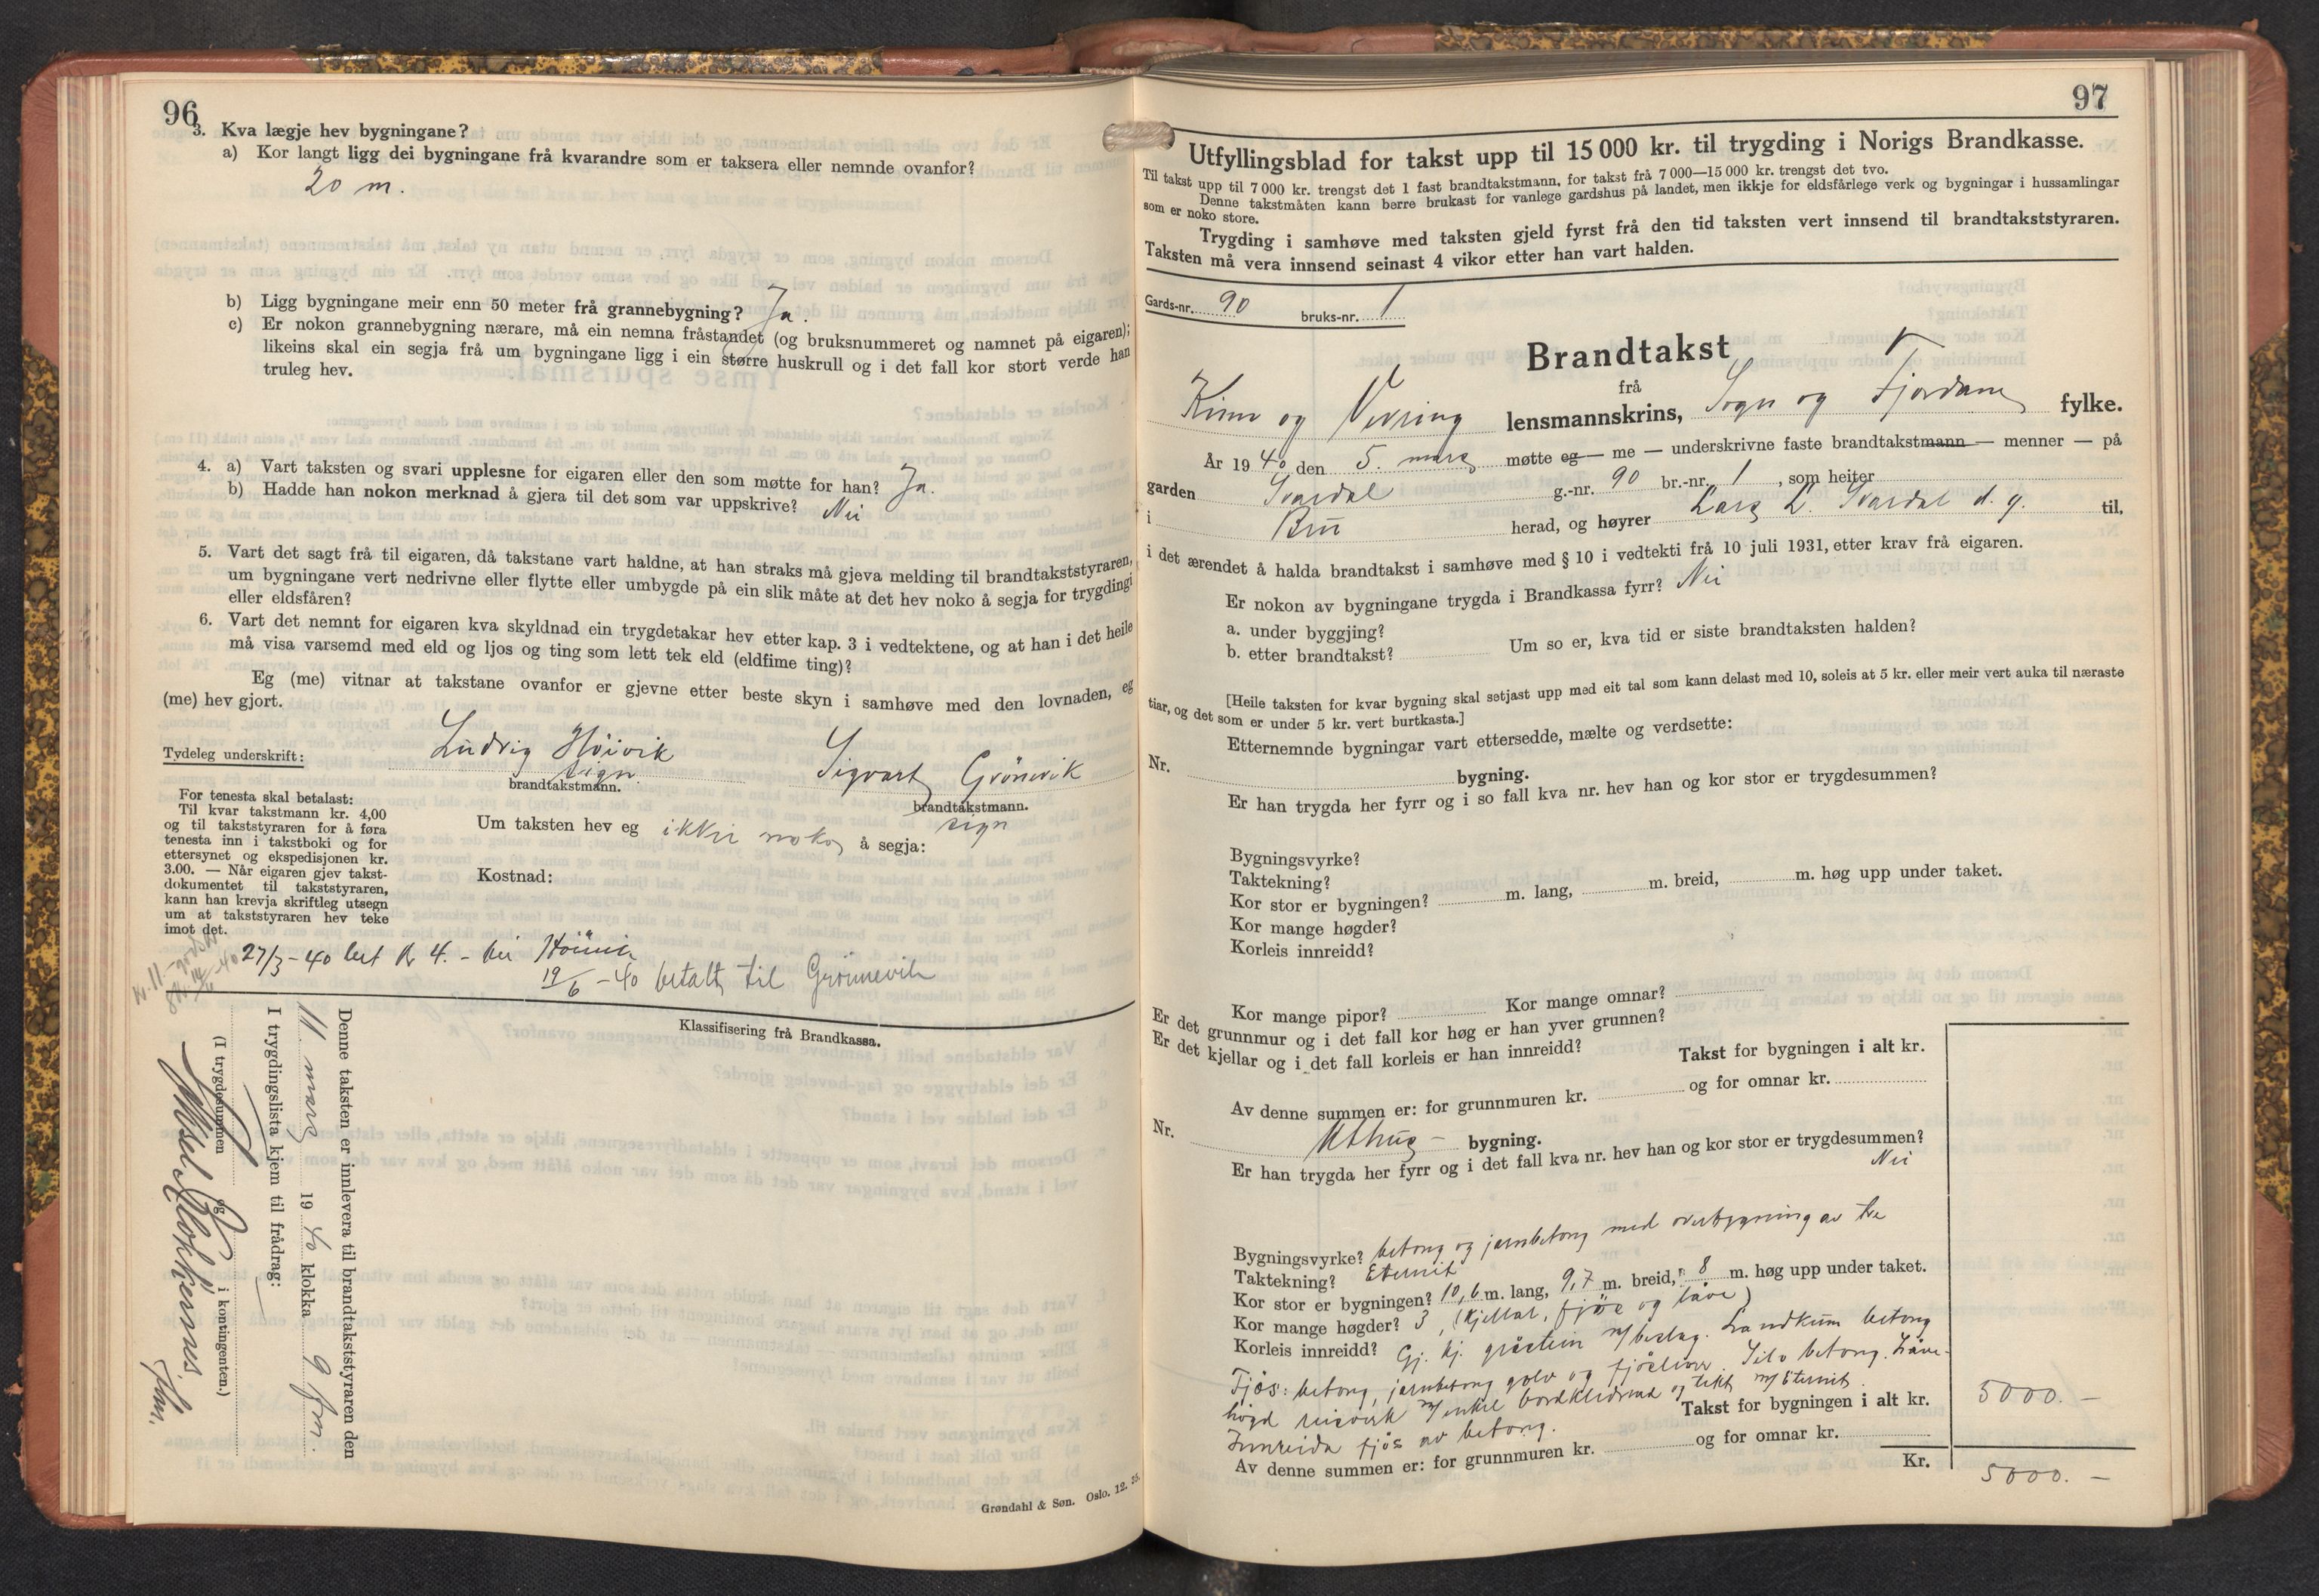 96
3. Kva lægje hev bygningane?
a) Kor langt ligg dei bygningane frå kvarandre som er taksera eller nemnde ovanfor?
20 m.
b) Ligg bygningane meir enn 50 meter frå grannebygning? Ja.
c) Er nokon grannebygning nærare, må ein nemna fråstandet (og bruksnummeret og namnet på eigaren);
likeins skal ein segja frå um bygningane ligg i ein større huskrull og i det fall kor stort verde han
truleg hev.
4. a) Vart taksten og svari upplesne for eigaren eller den som møtte for han? Ja.
b) Hadde han nokon merknad å gjera til det som var uppskrive? Nei
5. Vart det sagt frå til eigaren, då takstane vart haldne, at han straks må gjeva melding til brandtakststyraren,
um bygningane vert nedrivne eller flytte eller umbygde på ein slik måte at det hev noko å segja for trygdingi
eller eldsfåren?
6. Vart det nemnt for eigaren kva skyldnad ein trygdetakar hev etter kap. 3 i vedtektene, og at han i det heile
må visa varsemd med eld og ljos og ting som lett tek eld (eldfime ting)?
Eg (me) vitnar at takstane ovanfor er gjevne etter beste skyn i samhøve med den lovnaden, eg
(me) hev gjort.
Tydeleg underskrift: Ludvig Høivik Sigvart Grönevik
sign.
brandtakstmann. brandtakstmann.
sign
For tenesta skal betalast:
Til kvar takstmann kr. 4,00
og til takststyraren for å føra
tenesta inn i takstboki og for
ettersynet og ekspedisjonen kr.
3.00. — Når eigaren gjev takst-
dokumentet til takststyraren,
kann han krevja skriftleg utsegn
um at takststyraren hev teke
imot det.
Um taksten hev eg ikkje noko å segja:
Kostnad:
27/3-40 bet kr 4.-
19/6-40 betalt til Grönnevik
Klassifisering frå Brandkassa.
Denne taksten er innlevera til brandtakststyraren den
11. mars 1940 klokka 9 fm.
I trygdingslista kjem til frådrag:
(I trygdesummen og i kontingenten.)
Grøndahl & Søn. Oslo. 12. 35.
97
Utfyllingsblad for takst upp til 15 000 kr. til trygding i Norigs Brandkasse.
Til takst upp til 7 000 kr. trengst det 1 fast brandtakstmann, for takst frå 7 000—15 000 kr. trengst det tvo.
Denne takstmåten kann berre brukast for vanlege gardshus på landet, men ikkje for eldsfårlege verk og bygningar i hussamlingar
som er noko store.
Trygding i samhøve med taksten gjeld fyrst frå den tid taksten vert innsend til brandtakststyraren.
Taksten må vera innsend seinast 4 vikor etter han vart halden.
Gards-nr. 90 bruks-nr. 1
Brandtakst
frå
Kinn og Vevring lensmannskrins, Sogn og Fjordane fylke.
År 1940, den 5. mars møtte eg — me — underskrivne faste brandtakstmann — menner — på
garden Svardal g.-nr. 90 br.-nr. 1, som heiter
i Bru herad, og høyrer Lars L. Svardal d. y. til,
i det ærendet å halda brandtakst i samhøve med § 10 i vedtekti frå 10 juli 1931, etter krav frå eigaren.
Er nokon av bygningane trygda i Brandkassa fyrr? Nei
a. under byggjing?
b. etter brandtakst? Um so er, kva tid er siste brandtaksten halden?
[Heile taksten for kvar bygning skal setjast upp med eit tal som kann delast med 10, soleis at 5 kr. eller meir vert auka til næraste
tiar, og det som er under 5 kr. vert burtkasta.]
Etternemnde bygningar vart ettersedde, mælte og verdsette:
Nr. bygning.
Er han trygda her fyrr og i so fall kva nr. hev han og kor stor er trygdesummen?
Bygningsvyrke?
Taktekning?
Kor stor er bygningen? m. lang, m. breid, m. høg upp under taket.
Kor mange høgder?
Korleis innreidd?
Kor mange pipor? Kor mange omnar?
Er det grunnmur og i det fall kor høg er han yver grunnen?
Er det kjellar og i det fall korleis er han innreidd?
Takst for bygningen i alt kr.
Av denne summen er: for grunnmuren kr. og for omnar kr.
Nr. Uthus- bygning.
Er han trygda her fyrr og i det fall kva nr. hev han og kor stor er trygdesummen?
Nei
Bygningsvyrke? betong og jarnbetong med overbygning av tre
Taktekning? Eternit
Kor stor er bygningen? 10,6 m. lang, 9,7 m. breid, 8 m. høg upp under taket.
Kor mange høgder? 3, (kjellar, fjös og låve)
Korleis innreidd? Gj. kj. gråstein m/beslag. Landkum betong
Fjös: betong, jarnbetong golv og fjösliver. Silo betong. Låve-
högd reisverk m/enkel bordkledning og tekt m/Eternit.
Takst for bygningen i alt kr. 5000.-
Innreida fjös av betong.
Av denne summen er: for grunnmuren kr. og for omnar kr.
Kr. 5000.-